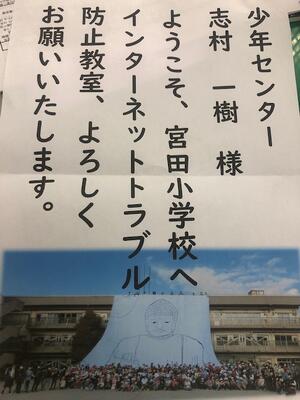 少年センター
志村　一樹　様
ようこそ、宮田小学校へ
インターネットトラブル
防止教室、よろしく
お願いいたします。